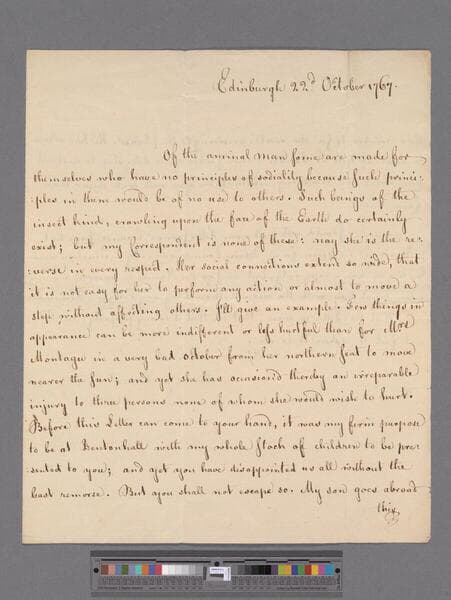 Edinburgh 22.d October 1767.
Of the animal Man some are made for
themselves who have no principles of sociality because such princi-
:ples in them would be of no use to others. Such beings of the
insect kind, crawling upon the face of the Earth do certainly
exist; but my Correspondent is none of these: nay she is the re-
:verse in every respect. Her social connections extend so wide, that
it is not easy for her to perform any action or almost to move a
step without affecting others. I'll give an example. Few things in
appearance can be more indifferent or less hurtful than for Mrs
Montagu in a very bad October from her northern seat to move
nearer the Sun; and yet she has occasiond thereby an irreparable
injury to three persons none of whom she would wish to hurt.
Before this Letter can come to your hand, it was my firm purpose
to be at Dentonhall with my whole stock of children to be pre-
:sented to you; and yet you have disappointed us all without the
least remorse. But you shall not escape so. My son goes abroad
this